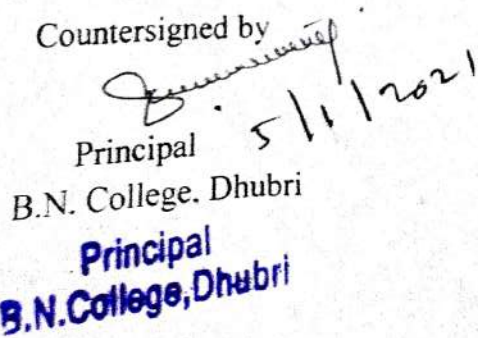 Countersigned by
5/1/2021
Principal
B.N. College. Dhubri
Principal
B.N.College,Dhubri